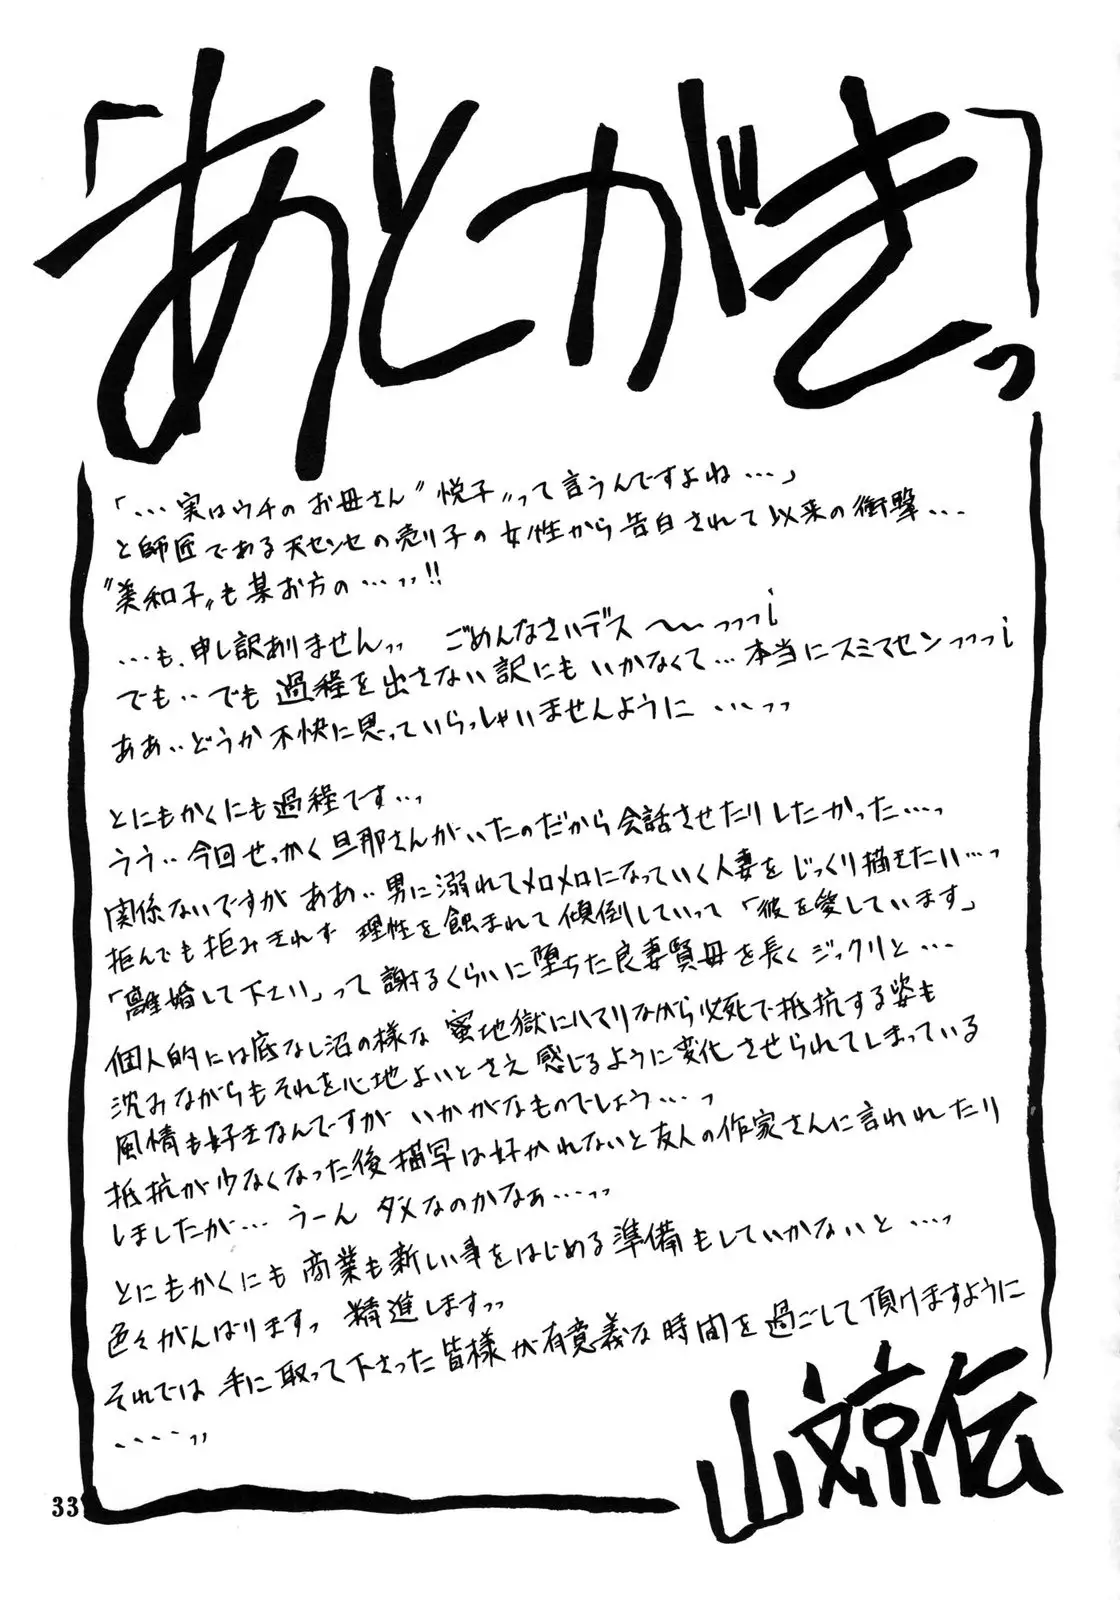 「あとがきっ」
「…実はウチのお母さん〝悦子〟って言うんですよね…」
と師匠である天センセの売り子の女性から告白されて以来の衝撃…
〝美和子〟も某お方の…ッッ!!
…も、申し訳ありませんッッ ごめんなさいデス～～ッッッ¡
でも‥でも過程を出さない訳にもいかなくて…本当にスミマセンッッッ¡
ああ‥どうか不快に思っていらっしゃいませんように…ッッ
とにもかくにも過程です…ッ
うう‥今回せっかく旦那さんがいたのだから会話させたりしたかった…ッ
関係ないですがああ‥男に溺れてメロメロになっていく人妻をじっくり描きたい…ッ
拒んでも拒みきれず理性を蝕まれて傾倒していって「彼を愛しています」
「離婚して下さい」って謝るくらいに堕ちた良妻賢母を長くジックリと…
個人的には底なし沼の様な蜜地獄にハマりながら必死で抵抗する姿も
沈みながらもそれを心地よいとさえ感じるように変化させられてしまっている
風情も好きなんですがいかがなものでしょう…ッ
抵抗が少なくなった後描写は好かれないと友人の作家さんに言われたり
しましたが…うーんダメなのかなぁ…ッッ
とにもかくにも商業も新しい事をはじめる準備もしていかないと…ッ
色々がんばりますッ 精進しますッッ
それでは手に取って下さった皆様が有意義な時間を過ごして頂けますように
‥‥ッッ
山文京伝
33